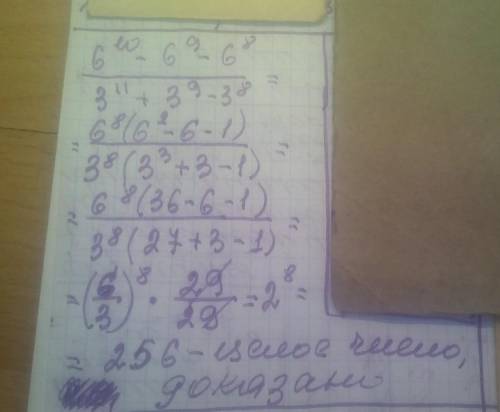 6¹⁰ - 6⁹ - 6⁸
3¹¹ + 3⁹ - 3⁸ =
= 6⁸(6² - 6 - 1)
3⁸(3³ + 3 - 1) =
= 6⁸(36 - 6 - 1)
3⁸(27 + 3 - 1) =
= (6/3)⁸ · 29/29 = 2⁸ =
= 256 - целое число,
доказано